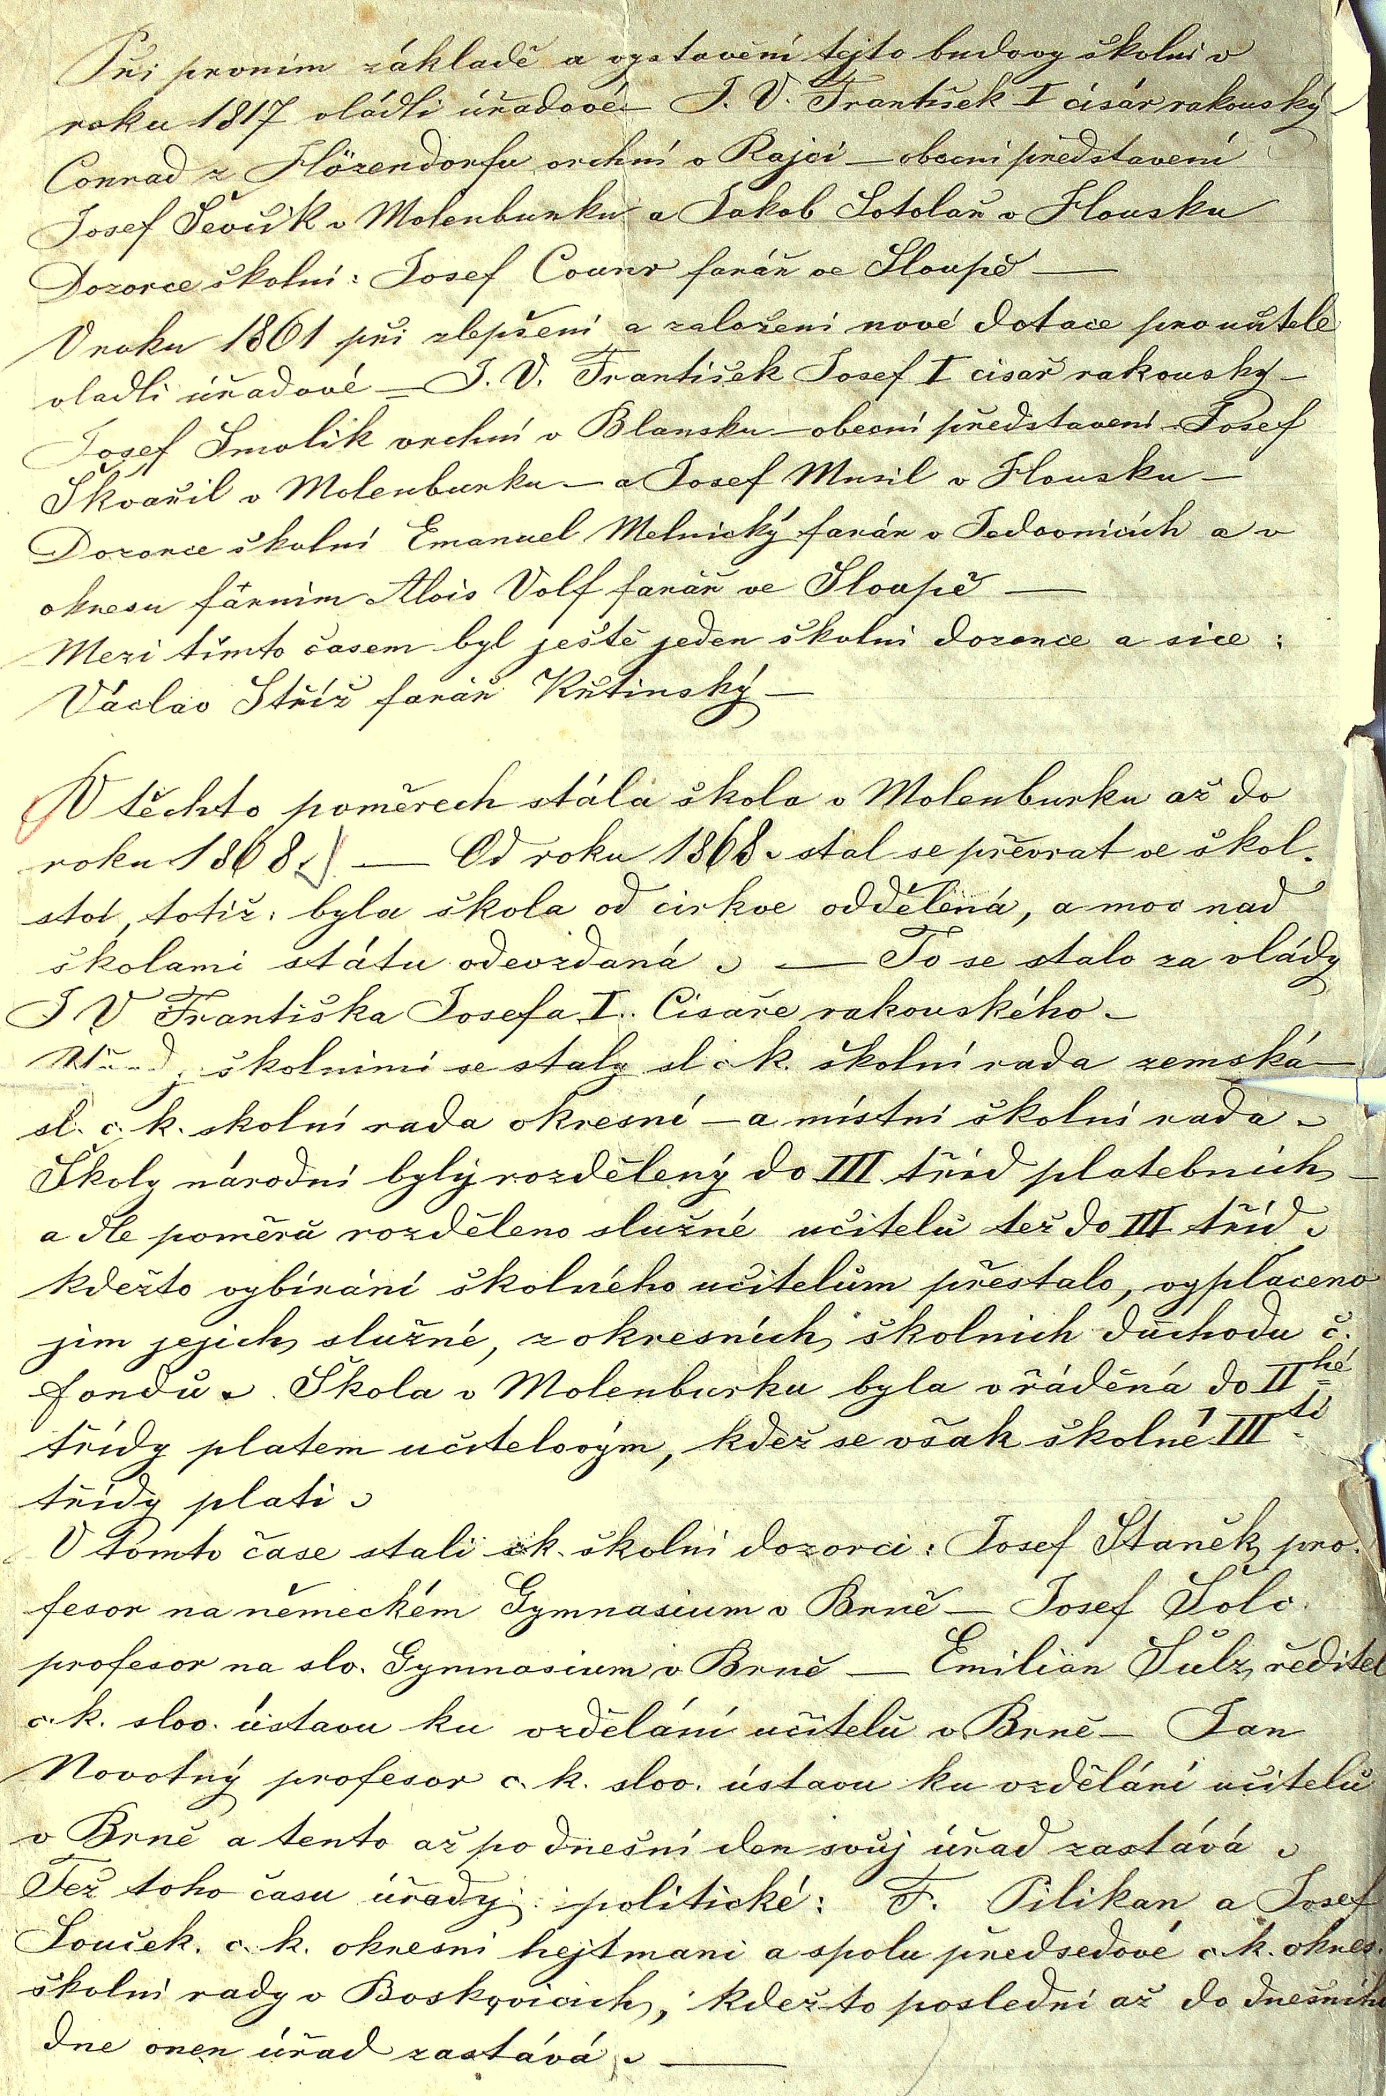 Při prvním základě a vystavění tejto budovy školni v
roku 1817 vládli úřadové — J. V. František I císár rakouský —
Conrad z Hözendorfu vrchní v Rajci — obecni představení
Josef Ševčík v Molenburku a Jakob Sotolař v Housku
Dozorce školní: Josef Counr farář ve Sloupě —
V roku 1861 při zlepšení a založeni nové dotace pro učitele
vladli úřadové — J. V. František Josef I cisař rakousky —
Josef Smolik vrchní v Blansku — obecní představeni — Josef
Škvařil v Molenburku — a Josef Musil v Housku —
Dozorce školní Emanuel Melnický farár v Jedovnicích a v
okresu fárnim Alois Volf farář ve Sloupě —
Mezi tímto časem byl ještě jeden školni dozorce a sice:
Václav Stříž farář Křtinský —
V těchto poměrech stála škola v Molenburku až do
roku 1868. — Od roku 1868. stal se převrat ve škol-
ství, totiž: byla škola od cirkve oddělená, a moc nad
školami státu odevzdaná. — To se stalo za vlády
J V Františka Josefa I.. Cisaře rakouského —
školními se staly sl c k. školní rada zemská —
sl. c. k. skolní rada okresní — a místní školní rada.
Školy národní byly rozdělený do III. tříd platebních —
a dle poměrů rozděleno služné učitelů tež do III tříd.
kdežto vybíráni školného učitelům přestalo, vyplaceno
jim jejich služné, z okresních školnich důchodu č.
fondů. Škola v Molenburku byla vřáděná do II hé
třídy platem učitelovým, kdež se však školné III tí
třídy plati.
V tomto čase stali ck. školní dozorci: Josef Staněk, pro-
fesor na německém Gymnasium v Brně — Josef Šolc
profesor na slv. Gymnasium v Brně — Emilián Šulz, ředitel
c. k. slov. ústavu ku vzdělání učitelů v Brně — Jan
Novotný profesor c. k. slov. ústavu ku vzdělání učitelů
v Brně a tento až po dnešní den svůj úřad zastává.
Též toho času úřady politické: F. Pilikan a Josef
Souček. c. k. okresni hejtmani a spolu předsedové c. k. okres.
školní rady v Boskovicich, kdežto poslední až do dnešního
dne onen úřad zastává. —